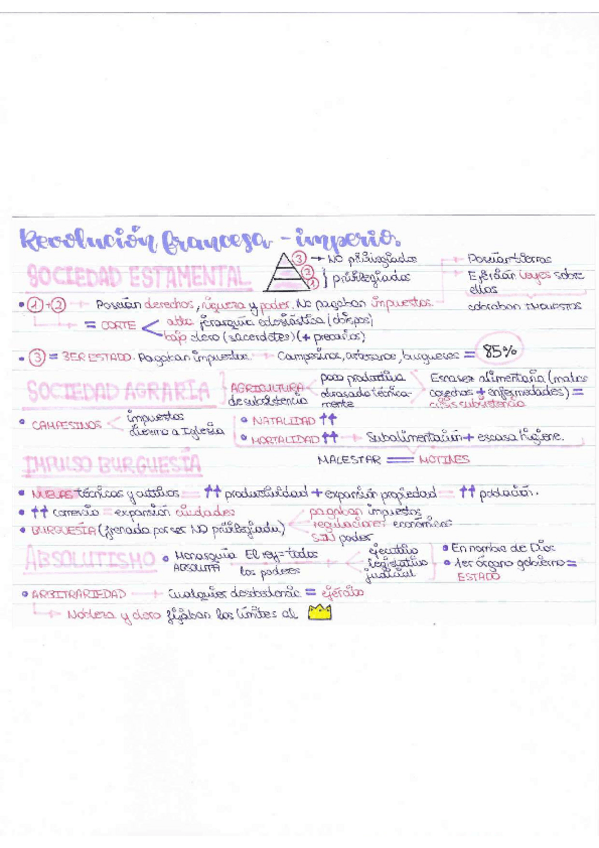 Revolución francesa - imperio.
SOCIEDAD ESTAMENTAL
3 → NO privilegiados
2
1 } privilegiados
→ Poseían tierras
→ Ejercían leyes sobre ellos
cobraban IMPUESTOS
• 1 + 2 → Poseían derechos, riqueza y poder. No pagaban impuestos.
= CORTE < alta jerarquía eclesiástica (obispos)
bajo clero (sacerdotes) (+ precarios)
• 3 = 3ER ESTADO. Pagaban impuestos. → Campesinos, artesanos, burgueses = 85%
SOCIEDAD AGRARIA
AGRICULTURA de subsistencia
poco productiva
atrasada técnicamente
Escasez alimentaria (malas cosechas + enfermedades) = crisis subsistencia
• CAMPESINOS < impuestos
diezmo a Iglesia
• NATALIDAD ↑↑
• MORTALIDAD ↑↑ → Subalimentación + escasa higiene.
MALESTAR = MOTINES
IMPULSO BURGUESÍA
• NUEVAS técnicas y cultivos = ↑↑ productividad + expansión propiedad = ↑↑ población.
• ↑↑ comercio = expansión ciudades
• BURGUESÍA (frenada por ser NO privilegiada)
pagaban impuestos
regulaciones económicas
SIN poder
ABSOLUTISMO
• Monarquía ABSOLUTA
El rey = todos los poderes
ejecutivo
legislativo
judicial
• En nombre de Dios
• 1er órgano gobierno = ESTADO
• ARBITRARIEDAD → Cualquier desobediencia = ejército
→ Nobleza y clero fijaban los límites al